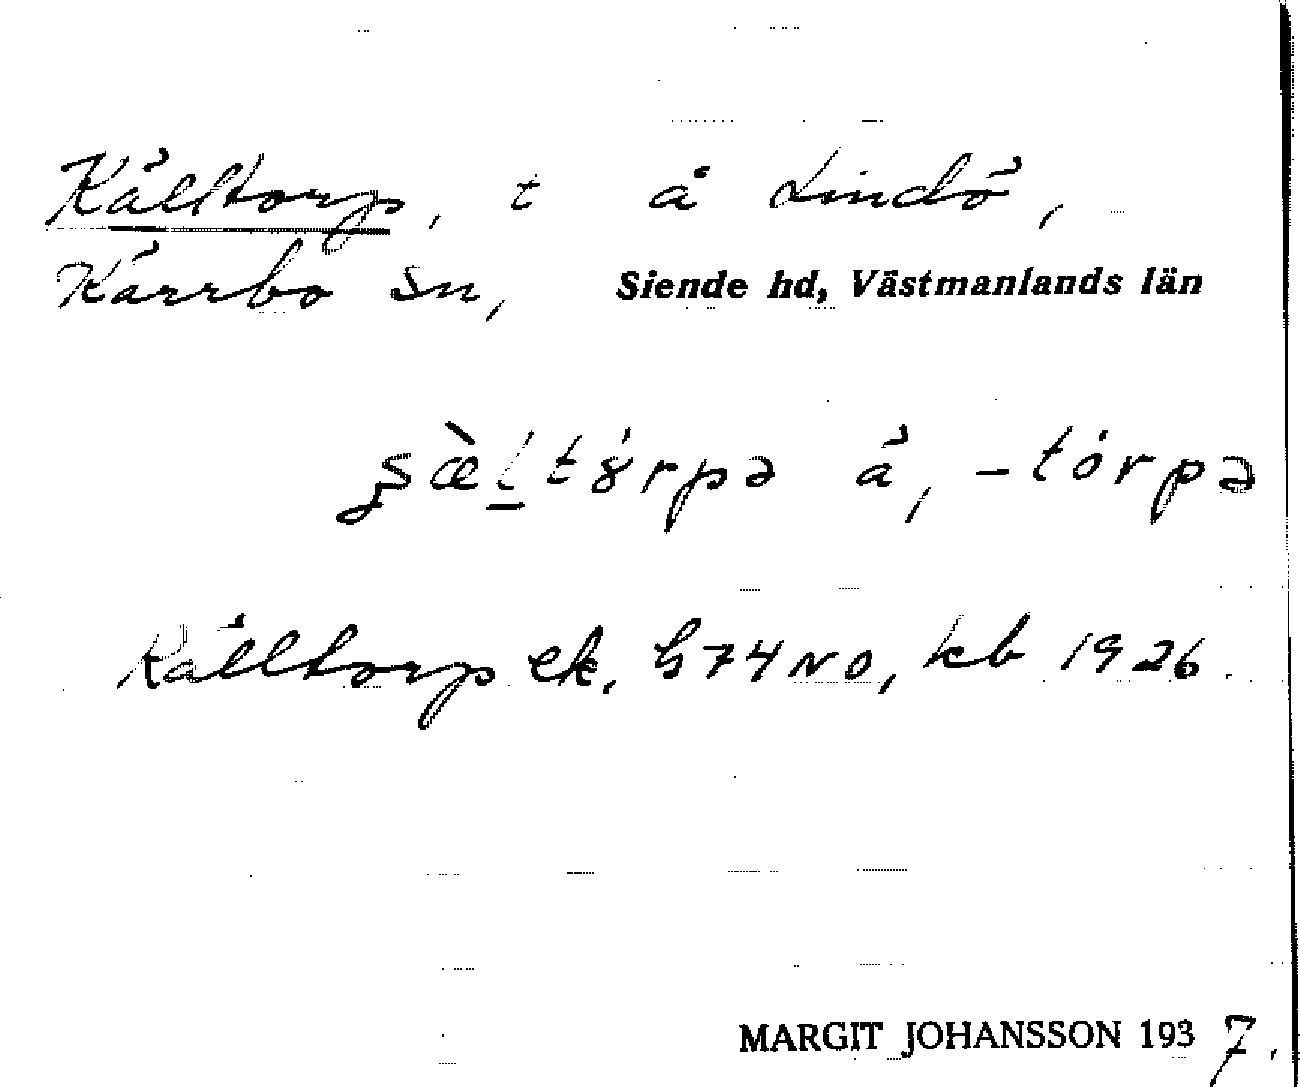 Källtorp, t å Lindö,
Kärrbo sn, Siende hd, Västmanlands län
å, -tórpə
Källtorp ek. G74NO, kb 1926.
MARGIT JOHANSSON 1937.